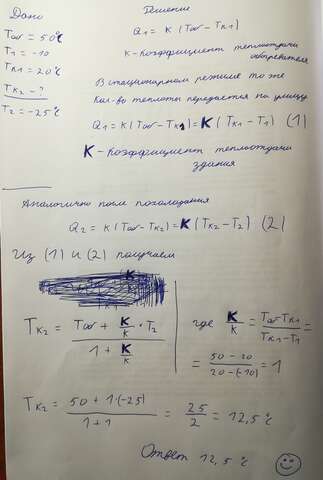 Дано
Tоо = 50°C
T1 = -10
Tк1 = 20°C
Tк2 - ?
T2 = -25°C
Решение
Q1 = к (Tоо - Tк1)
к - коэффициент теплоотдачи
обогревателя
В стационарном режиме то же
кол-во теплоты передается на улицу
Q1 = к (Tоо - Tк1) = К (Tк1 - T1) (1)
К - коэффициент теплоотдачи
здания
Аналогично после похолодания
Q2 = к (Tоо - Tк2) = К (Tк2 - T2) (2)
Из (1) и (2) получаем
Tк2 = (Tоо + К/к · T2) / (1 + К/к)
где К/к = (Tоо - Tк1) / (Tк1 - T1) =
= (50 - 20) / (20 - (-10)) = 1
Tк2 = (50 + 1(-25)) / (1 + 1) = 25/2 = 12,5 °C
Ответ 12,5 °C